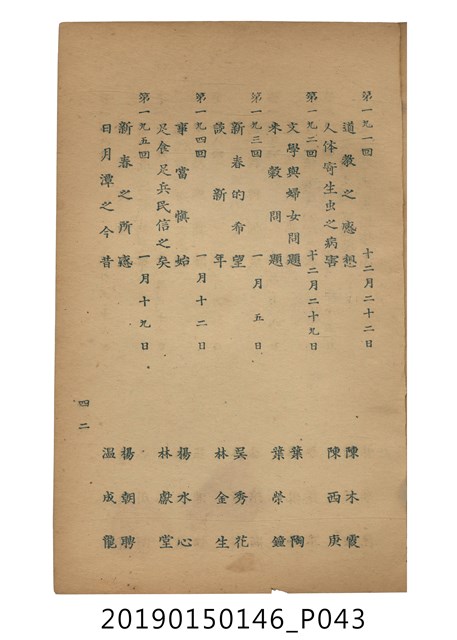 第一九一回　十二月二十二日
道教之感想　陳木霞
人体寄生虫之病害　陳西庚
第一九二回　十二月二十九日
文學與婦女問題　葉陶
米穀問題　葉榮鐘
第一九三回　一月五日
新春的希望　吳秀花
談新年　林金生
第一九四回　一月十二日
事當慎始　楊水心
足食足兵民信之矣　林獻堂
第一九五回　一月十九日
新春之所感　楊朝聘
日月潭之今昔　温成龍
四二
20190150146_P043